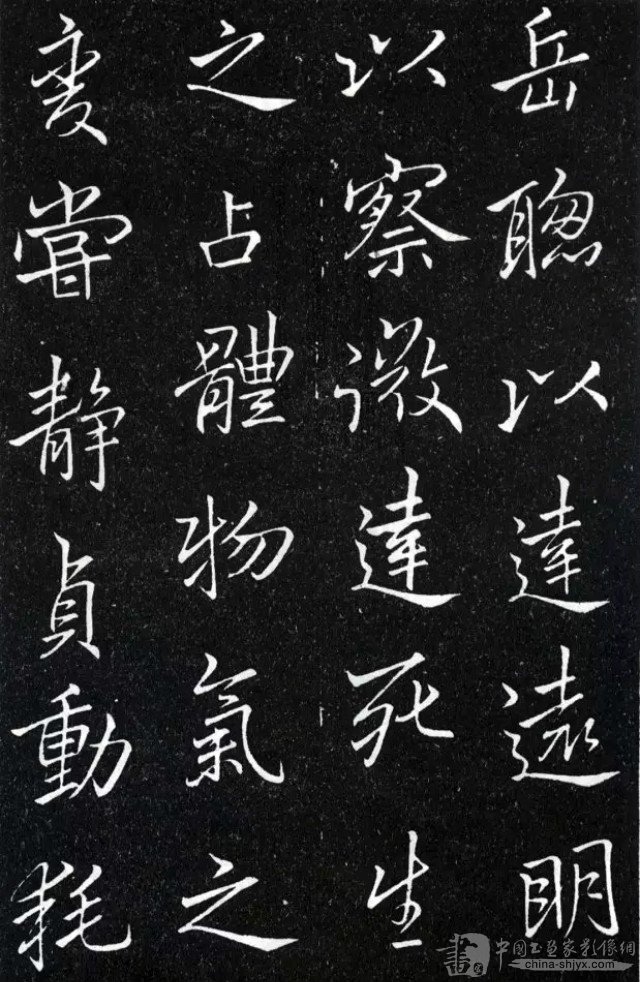 岳聰以達遠明
以察微達死生
之占體物氣之
変嘗静貞動耗
中国书画家影像網
china-shjyx.com